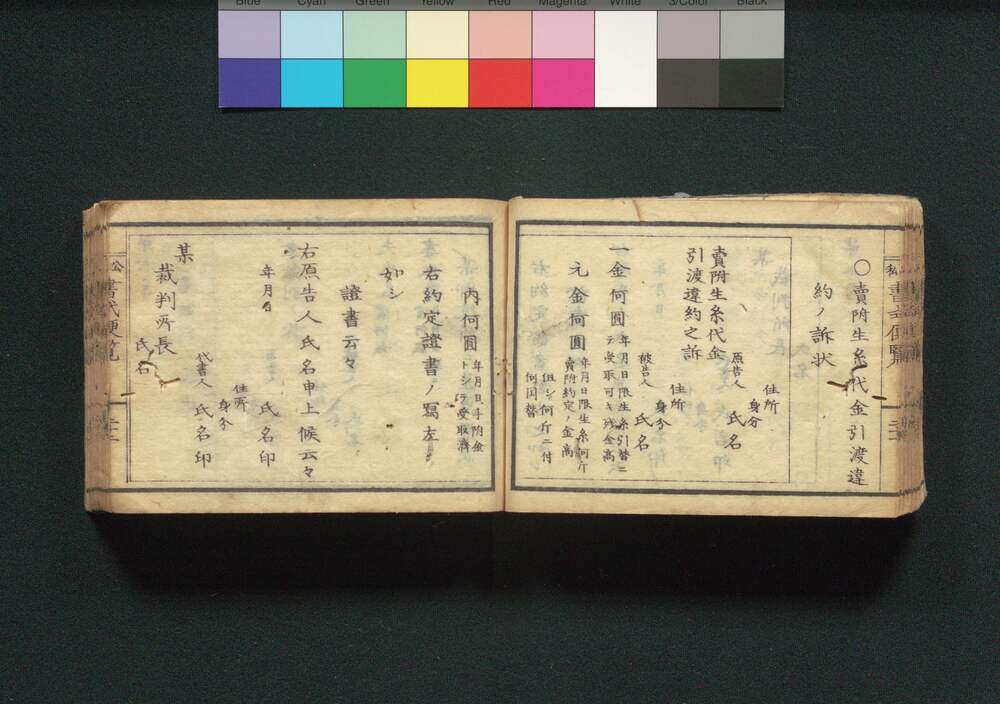 Blue Cyan Green Yellow Red Magenta White 3/Color Black
〇賣附生糸代金引渡違
約ノ訴状
賣附生糸代金
引渡違約之訴
住所
身分
原告人 氏名
住所
身分
被告人 氏名
一金何圓 年月日限生糸引替ニ
テ受取可キ残金高
元金何圓 年月日限生糸何斤
賣附約定ノ金高
但シ何斤ニ付
何円替
内何圓 年月日手附金
トシテ受取済
右約定證書ノ寫左ノ
如シ
證書云々
右原告人氏名申上候云々
年月日 氏名印
住所
身分
代書人 氏名印
某
裁判所長
氏名
公
書式便覧